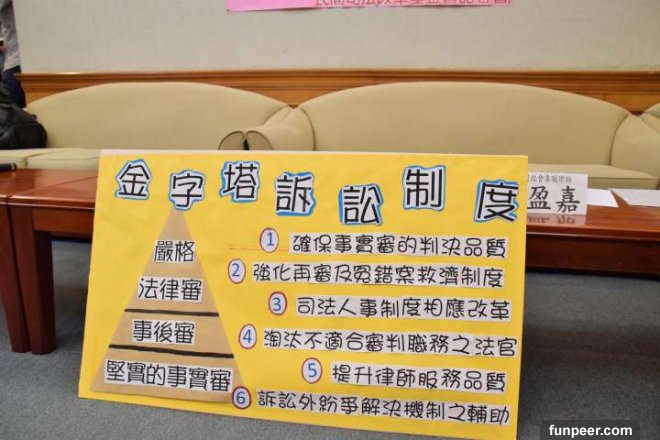 民間司法改革基金會記者會
金字塔訴訟制度
嚴格
法律審
事後審
堅實的事實審
① 確保事實審的判決品質
② 強化再審及冤錯案救濟制度
③ 司法人事制度相應改革
④ 淘汰不適合審判職務之法官
⑤ 提升律師服務品質
⑥ 訴訟外紛爭解決機制之輔助
盈嘉
funpeer.com